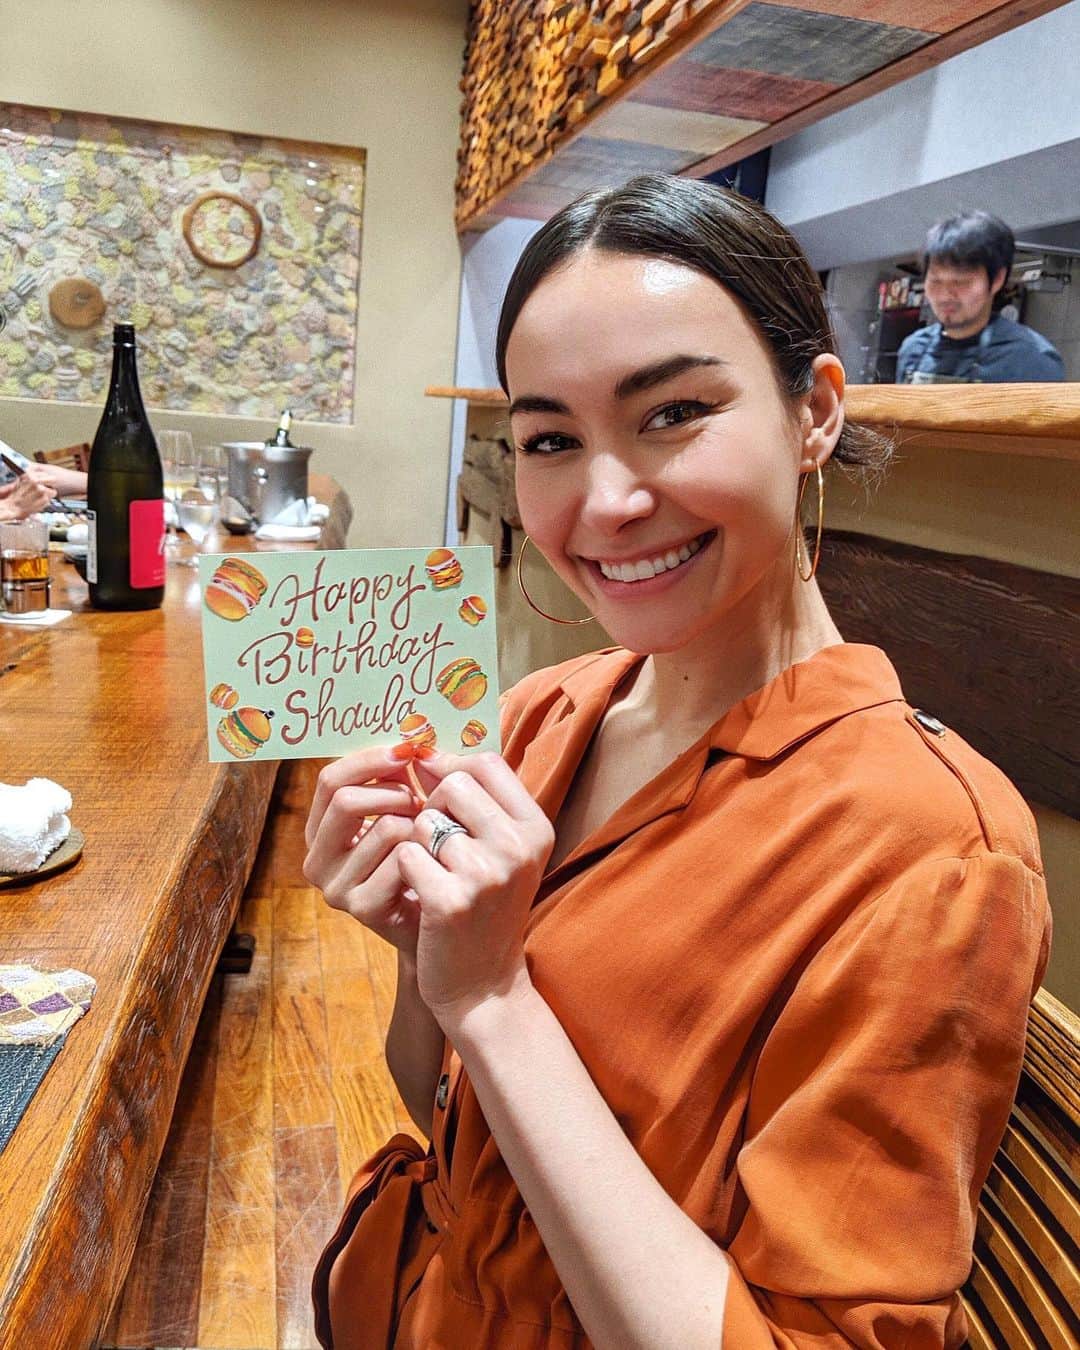 Happy
Birthday
Shaula